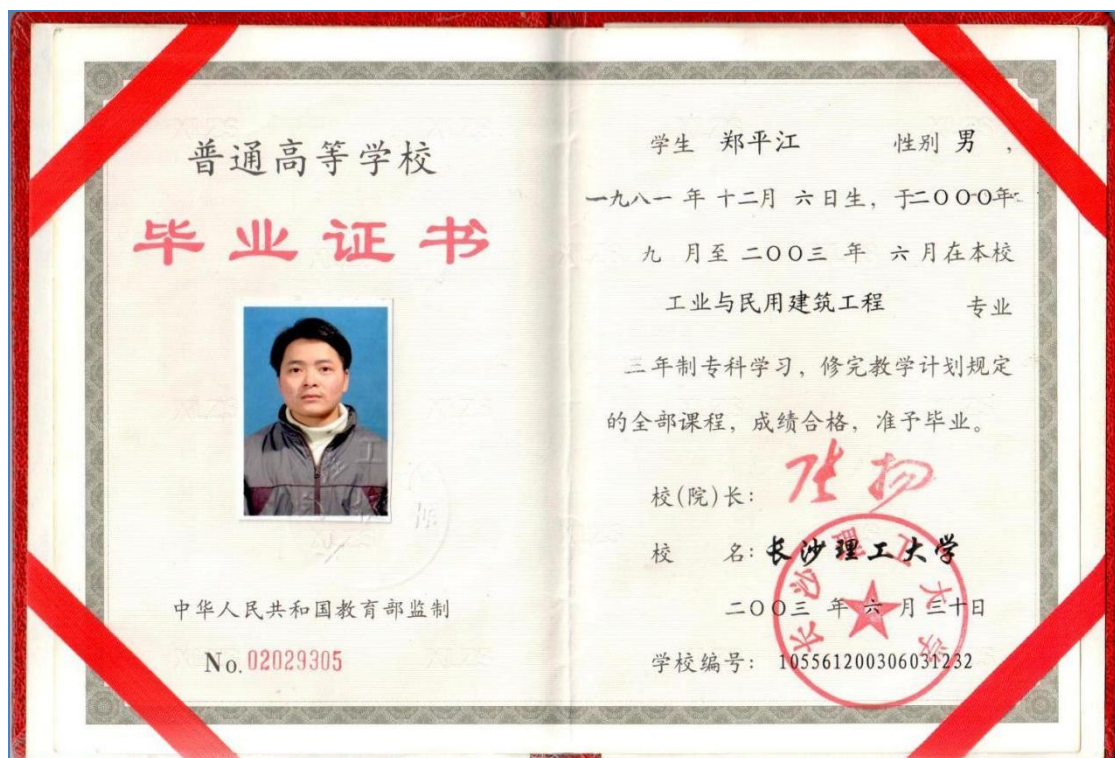 普通高等学校
毕业证书
中华人民共和国教育部监制
No. 02029305
学生 郑平江 性别 男 ,
一九八一 年 十二月 六 日生, 于二〇〇〇年
九 月至 二〇〇三 年 六 月在本校
工业与民用建筑工程 专业
三年制专科学习, 修完教学计划规定
的全部课程, 成绩合格, 准予毕业。
校(院)长:
校 名: 长沙理工大学
二〇〇三 年 六 月 三十日
学校编号: 105561200306031232
长沙理工大学